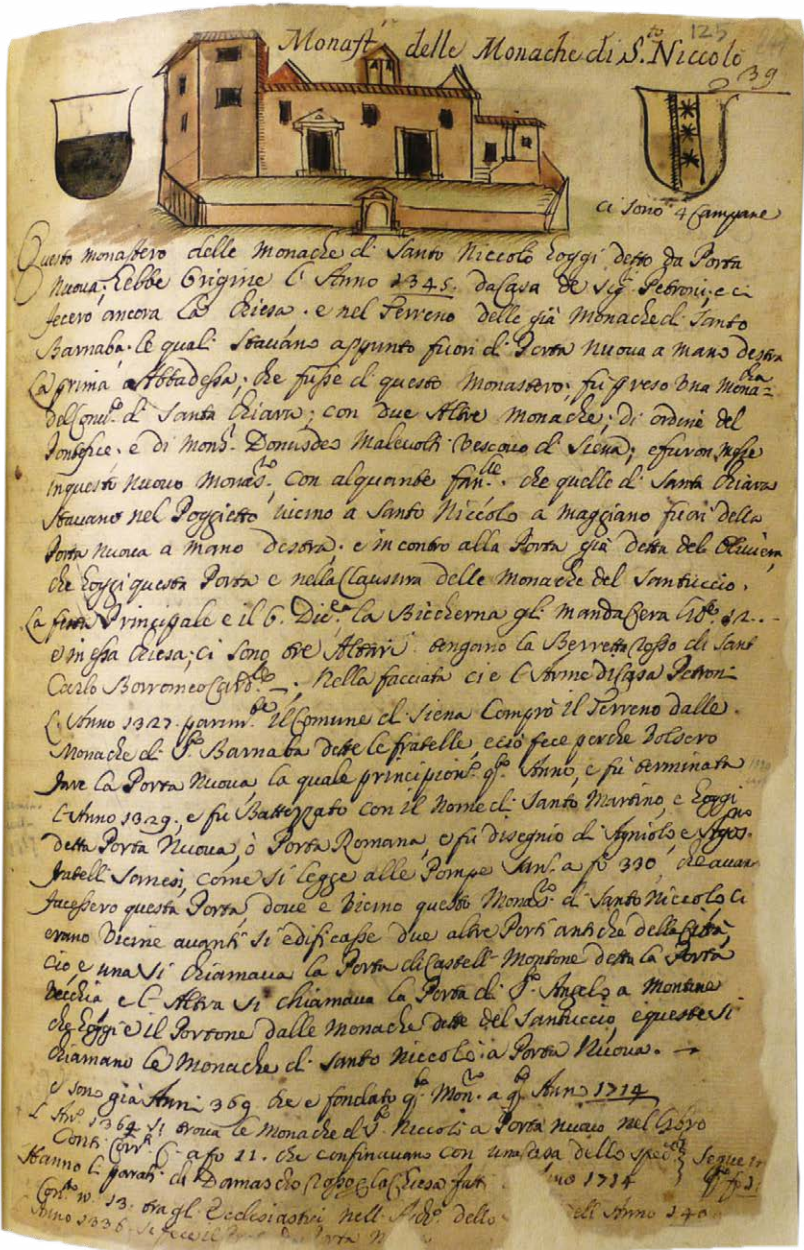 125
Monast.ro delle Monache di S.to Niccolò
39
ci sono 4 Campane
Questo monastero delle Monache di Santo Niccolò hoggi detto da Porta
Nuova; hebbe Origine l'Anno 1345. da Casa de Sig.ri Petroni; e ci
fecero ancora la Chiesa. e nel Terreno delle già Monache di Santo
Barnaba. le quali stavano appunto fuori di Porta Nuova a mano destra
La prima Abbadessa; che fusse di questo Monastero; fu preso una Mona:cha
del Conv.to di Santa Chiara; con due Altre monache; di ordine del
Pontefice. e di Mons.r Donusdeo Malevolti Vescovo di Siena; e furon messe
in questo nuovo Monas.ro con alquante fan.lle. che quelle di Santa Chiara
stavano nel Poggietto vicino a Santo Niccolò a Maggiano fuori della
Porta Nuova a mano destra. e incontro alla Porta già detta del Oliviera,
che hoggi questa Porta e nella Clausura delle Monache del Santuccio.
La festa Principale e il 6. Dic.e la Biccherna gli manda Cera 12...
e in essa Chiesa; ci sono tre Altari tengano la Berretta Rosso di Sant
Carlo Borromeo Card.le —; Nella facciata ci e l'Arme di Casa Petroni
L'Anno 1327. parim.te il Comune di Siena Comprò il Terreno dalle
Monache di S.to Barnaba dette le fratelle, e ciò fece perche volsero
fare la Porta Nuova, la quale principion. q.to Anno, e fù terminata
l'Anno 1329; e fu Battezzato con il Nome di Santo Martino, e hoggi
detta Porta Nuova, ò Porta Romana, e fù disegnio di Agniolo e Agos.no
fratelli Sanesi, come si legge alle Pompe San. a fo 330, che avan
facessero questa Porta, dove e vicino questo Monas.ro di Santo Niccolò ci
erano vicine avanti si edificasse due altre Porti antiche della Città,
ciò, e una si chiamava la Porta di Castell Montone detta la Porta
Vecchia e l'Altra si chiamava la Porta di S.to Angelo a Montone
che hoggi e il Portone dalle Monache dette del Santuccio, e queste si
chiamano le Monache di Santo Niccolò à Porta Nuova. —
e sono già Anni 369 che e fondato q.to Mon.ro a q.to Anno 1714
L'An.o 1364 si trova le Monache di S.to Niccolò a Porta nuova nel Libro
Conti Corr.ti C. a fo 11. che confinavano con una casa dello spe Segue
Hanno li parati di Damascho Rosso e la Chiesa 1714
13. ora gl'Ecclesiastici nell' dello dell'Anno 140
Anno 1336. si fece il Porta